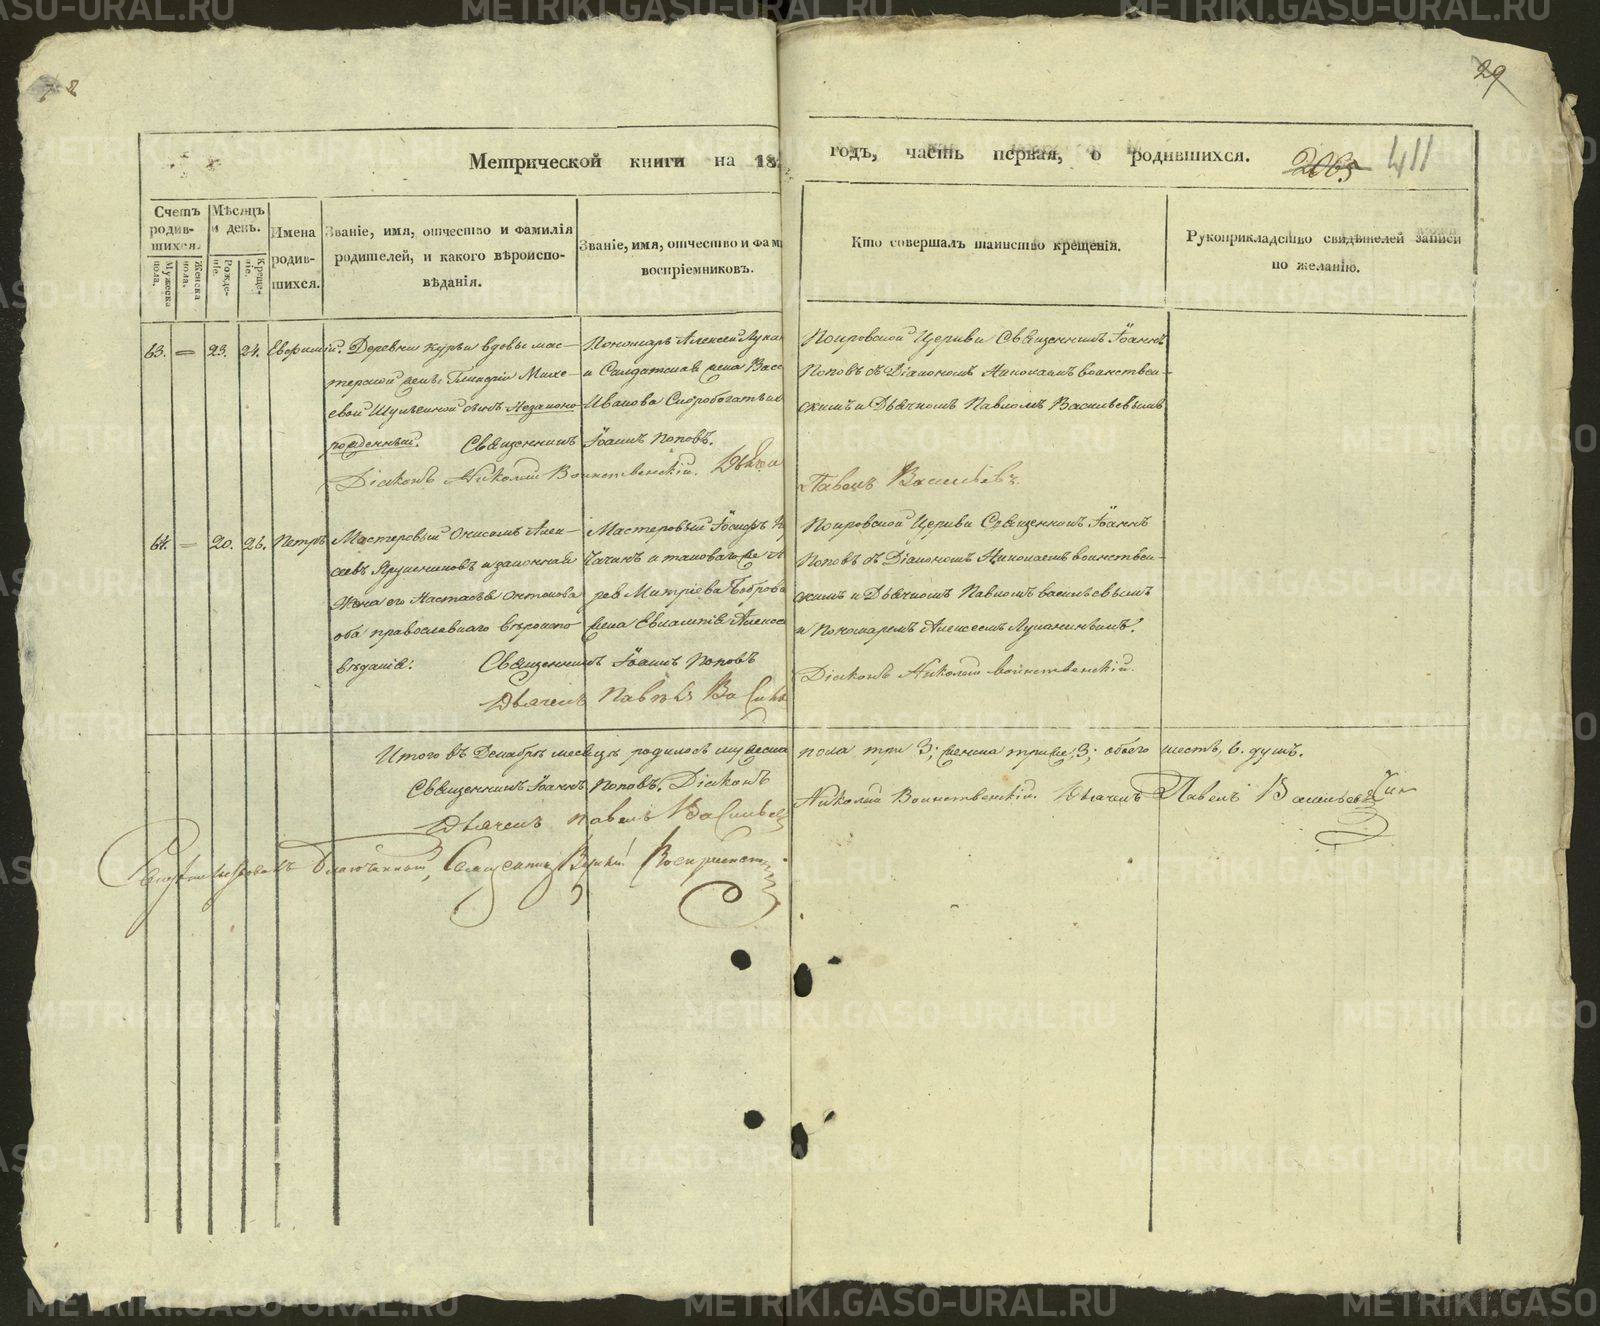 29
2065 411
Метрической книги на 18
годъ, часть первая, о родившихся.
Счетъ родив-шихся.
Мужеска пола.
Женска пола.
Мѣсяцъ и день.
Рожде-ніе.
Креще-ніе.
Имена родив-шихся.
Званіе, имя, отчество и фамилія
родителей, и какого вѣроиспо-
вѣданія.
Званіе, имя, отчество и фам
воспріемниковъ.
Кто совершалъ таинство крещенія.
Рукоприкладство свидѣтелей записи
по желанію.
63. — 23. 24. Евфимій.
Деревни Курьи вдовы мас-
терской жены Гликеріи Михе-
евой сынъ Незаконо
рожденный. Священникъ Іоаннъ Поповъ.
Діаконъ Николай Воинственскій.
Пономарь Алексей Лукан
и Салдатская жена Вас
Иванова Скоробогатых
Покровской Церкви Священникъ Іоаннъ
Поповъ съ Діакономъ Николаемъ воинствен-
скимъ и Дьячкомъ Павломъ Васильевымъ
Павелъ Васильевъ
64. — 20. 26. Петръ
Мастеровый Онисимъ Алек-
сеевъ и законная
Жена его Настасья Антонова
оба православнаго вѣроиспо
вѣданія. Священникъ Іоаннъ Поповъ
Дьячекъ Павелъ Василь
Мастеровый Іосифъ
и таковагоже
Митріева Боброва
жена Евлампія Алексе
Покровской Церкви Священникъ Іоаннъ
Поповъ съ Діакономъ Николаемъ воинствен-
скимъ и Дьячкомъ Павломъ васильевымъ
и Пономаремъ Алексеемъ Луканинымъ.
Діаконъ Николай воинственскій.
Итого въ Декабрѣ месяцѣ родилось мужеска пола три 3; женска трижъ 3; обоего шесть, 6. душъ.
Священникъ Іоаннъ Поповъ. Діаконъ Николай Воинственскій. Дьячекъ Павелъ Васильевъ
Дьячекъ Павелъ Васильевъ
Свидетельствовалъ Благочинный, Священникъ